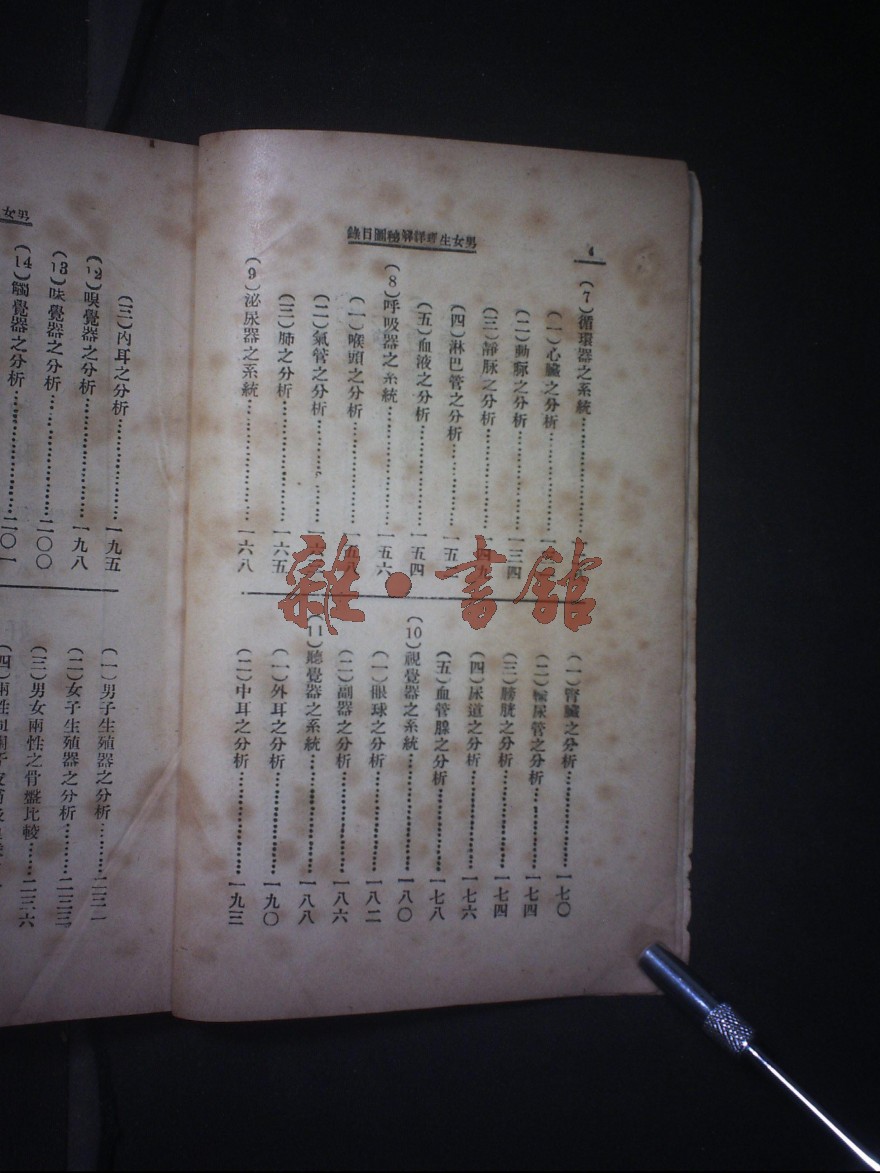 4
男女生理詳解祕圖目錄
(7)循環器之系統
(一)心臟之分析
(二)動脈之分析 一三四
(三)靜脉之分析 一四九
(四)淋巴管之分析
(五)血液之分析 一五四
(8)呼吸器之系統 一五六
(一)喉頭之分析 一五八
(二)氣管之分析
(三)肺之分析 一六五
(9)泌尿器之系統 一六八
(一)腎臟之分析 一七〇
(二)輸尿管之分析 一七四
(三)膀胱之分析 一七四
(四)尿道之分析 一七六
(五)血管腺之分析 一七八
(10)視覺器之系統 一八〇
(一)眼球之分析 一八二
(二)副器之分析 一八六
(11)聽覺器之系統 一八八
(一)外耳之分析 一九〇
(二)中耳之分析 一九三
男女
(三)內耳之分析 一九五
(12)嗅覺器之分析 一九八
(13)味覺器之分析 二〇〇
(14)觸覺器之分析 二〇一
(一)男子生殖器之分析
(二)女子生殖器之分析 二三三
(三)男女兩性之骨盤比較 二三六
雜·書館